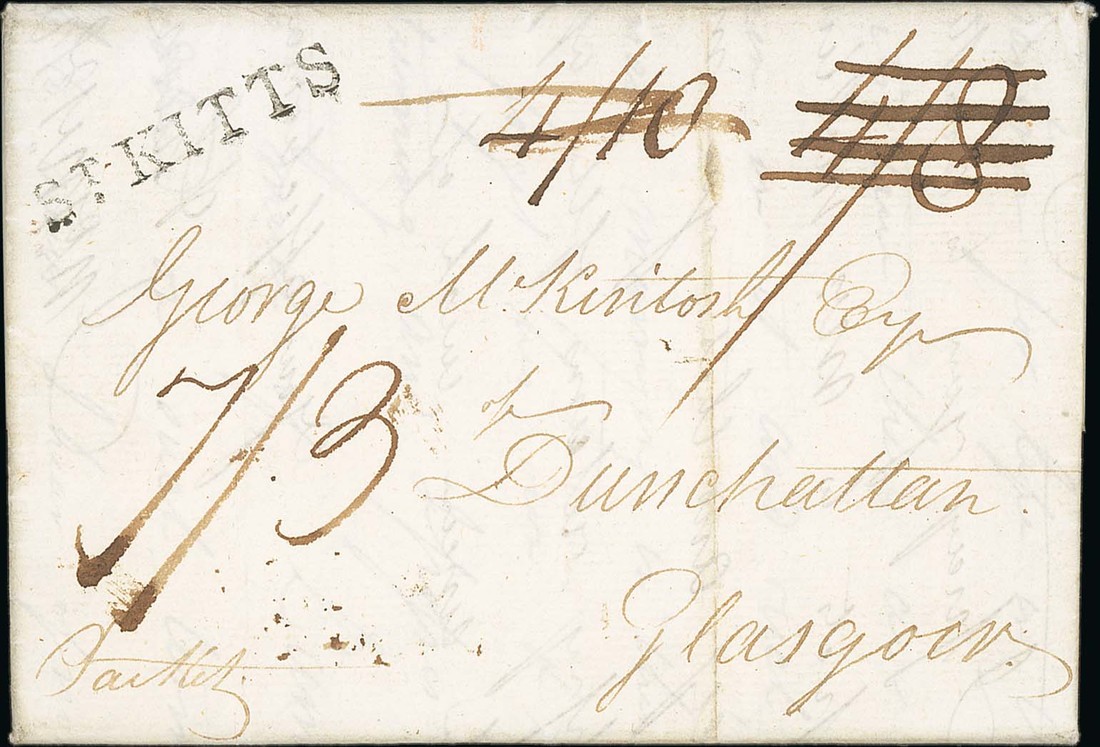 ST. KITTS
4/10
4/8
George McKintosh Esqr
of
Dunchattan
7/3
Glasgow.
Packet